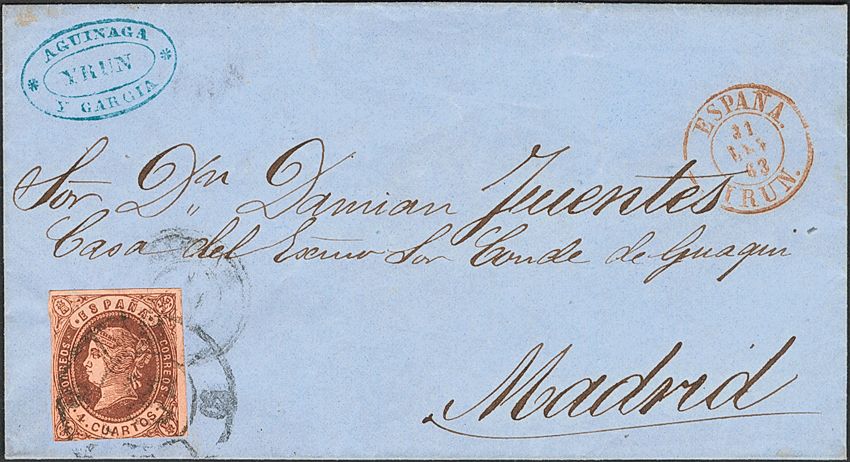 AGUINAGA
YRUN
Y GARCIA
ESPAÑA.
31
ENE
63
IRUN.
Sor Dn Damian Fuentes
Casa del Exmo Sor Conde de Guaqui
Madrid
ESPAÑA
CORREOS
CORREOS
4 CUARTOS